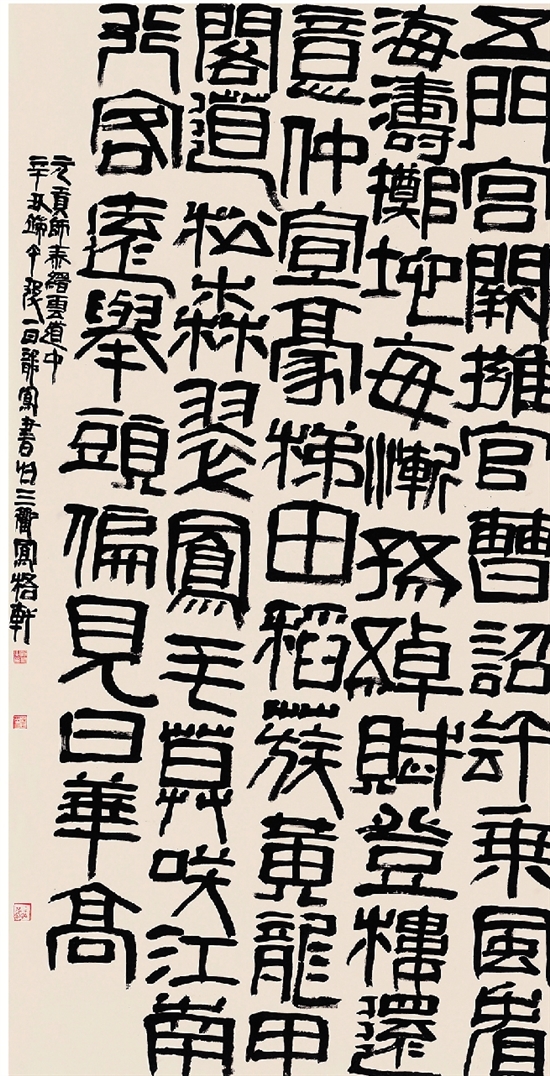 五門宮闕擁官曹詔許乘風看
海濤擲地每慚孫綽賦登樓還
意仲宣豪梯田稻簇黃龍甲
閣道松森翠鳳毛莫咲江南
行客遠舉頭偏見日華高
元貢師泰縉雲道中
辛丑端午後一日龍鳳書於三衢鳳梧軒